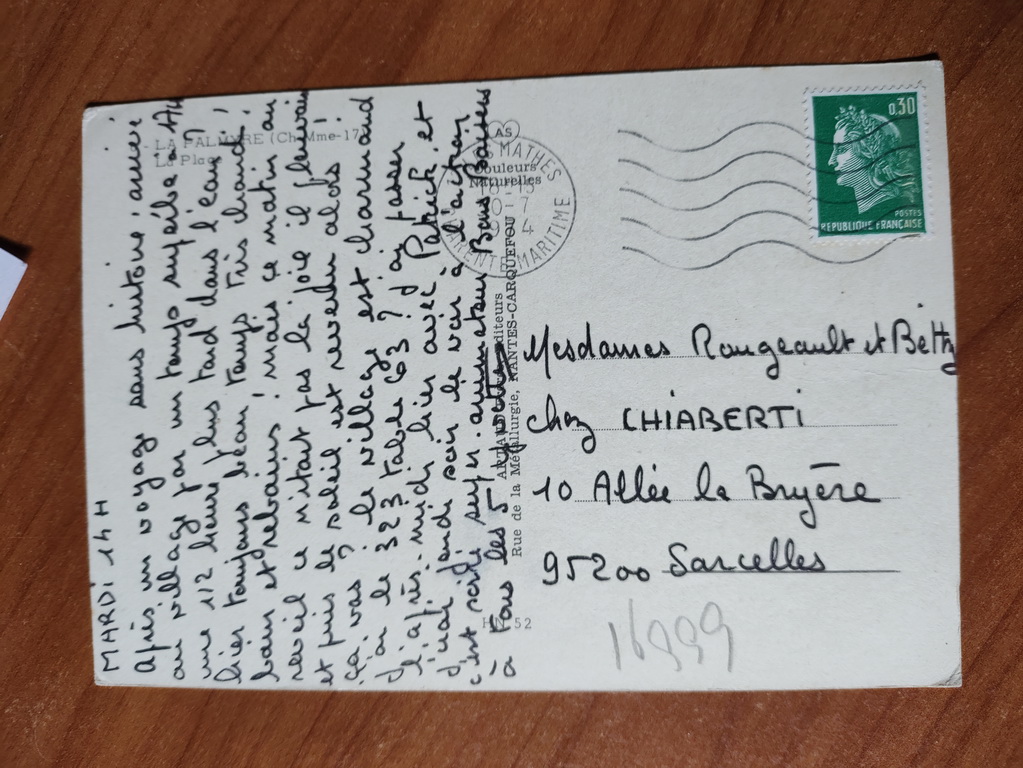 MARDI 14H
Après un voyage sans histoire, arrivé
au village par un temps superbe à 17H
une 1/2 heure plus tard dans l'eau ?
hier toujours beau temps très chaud,
bain et rebains ! mais ce matin au
reveil ce n'etait pas la joie il pleuvais
et puis le soleil est revenu alors !
ça vas ? le village est charmand
J'ai le 323 table 63 ? J'ai passer
l'après-midi hier avec Patrick et
Jeudi soir le voir à l'action
c'est soirée super animateur Bons Baisers
à Tous les 5
- LA PALMYRE (Ch-Mme-17)
La Plage
AS
Couleurs
Naturelles
LES MATHES
18-15
-7
CHARENTE MARITIME
ARTAUD Editeurs
Rue de la Métallurgie, NANTES-CARQUEFOU
HN 52
0,30
POSTES
REPUBLIQUE FRANÇAISE
Mesdames Rougeault et Betty
chez CHIABERTI
10 Allée la Bruyère
95200 Sarcelles
16999